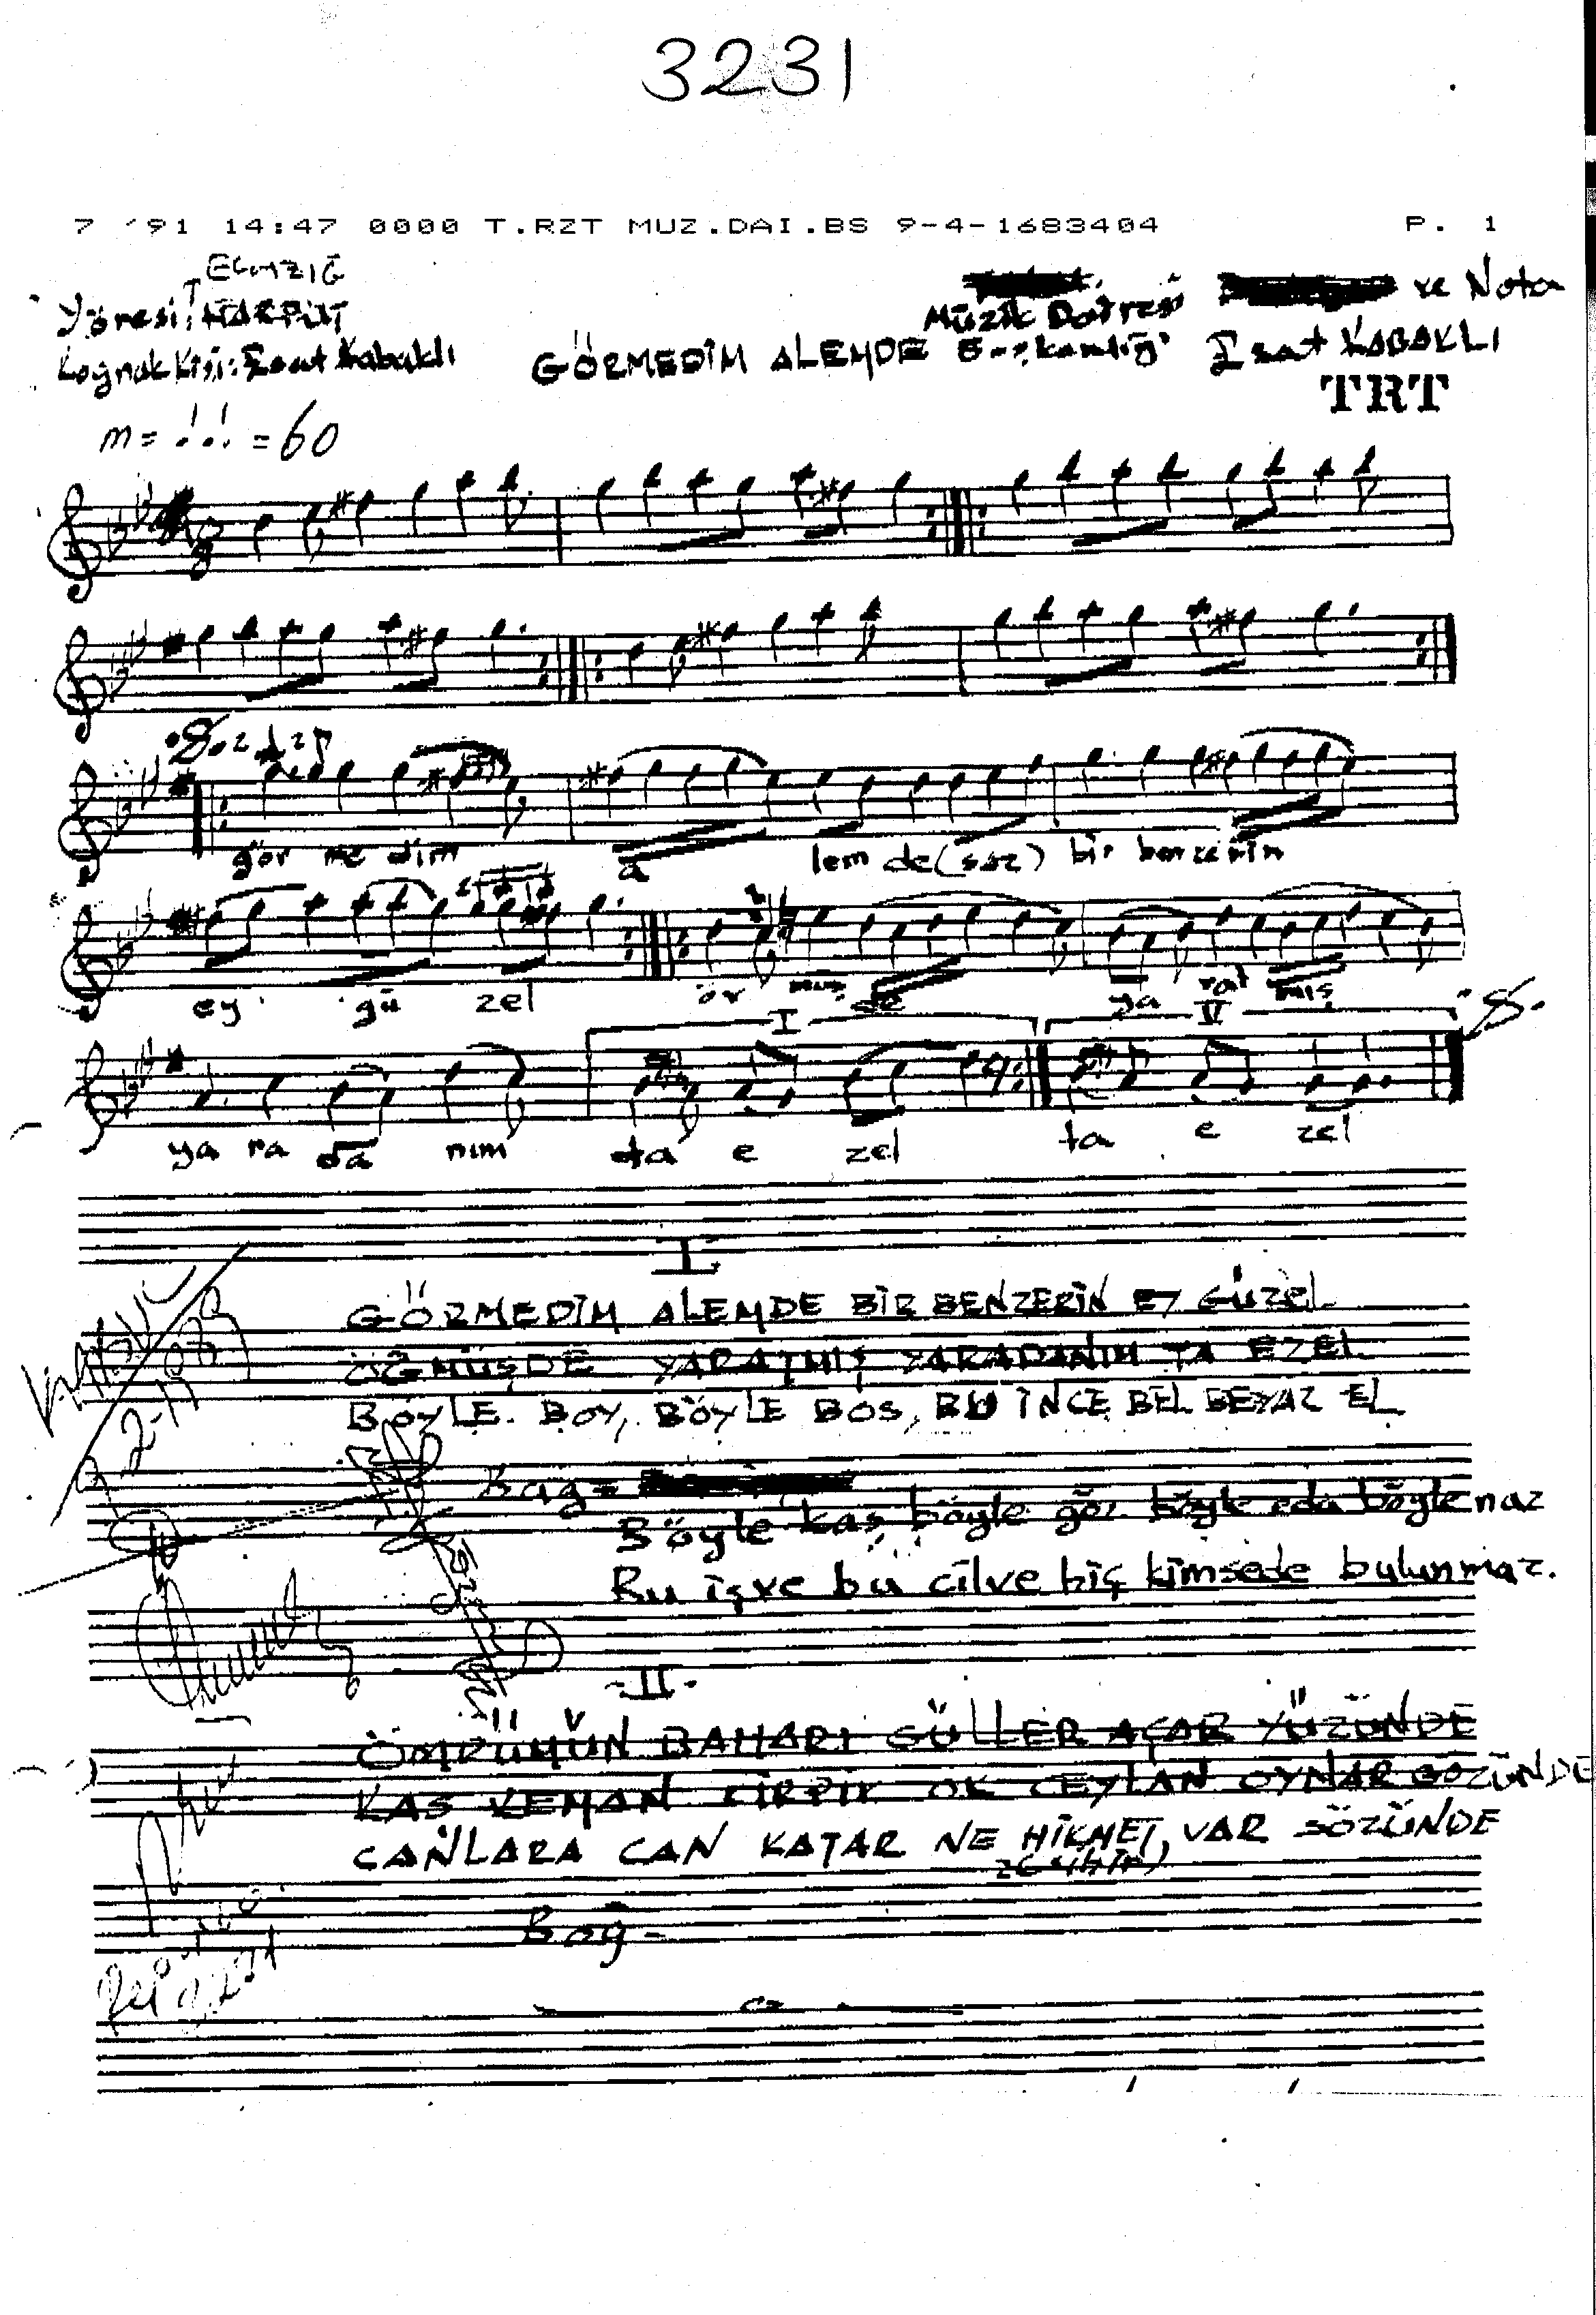 3231
7 '91 14:47 0000 T.RZT MUZ.DAI.BS 9-4-1683404 P. 1
ELAZIĞ
Yöresi: HARPUT
Müzik Dairesi ve Nota
Kaynak Kişi: Esat Kabaklı GÖRMEDİM ALEMDE Esat KABAKLI
TRT
m = = 60
gör me dim a lem de (saz) bir benzerin
ey gü zel ör müş de ya rat mış
I II
ya ra da nım ta e zel ta e zel
I
GÖRMEDİM ALEMDE BİR BENZERİN EY GÜZEL
ÖĞMÜŞDE YARATMIŞ YARADANIM TA EZEL
BÖYLE BOY, BÖYLE BOS, BU İNCE BEL BEYAZ EL
Bağ =
Böyle kaş böyle göz böyle eda böyle naz
Bu işve bu cilve hiç kimsede bulunmaz.
-II-
ÖMRÜMÜN BAHARI GÜLLER AÇAR YÜZÜNDE
KAŞ KEMAN KİRPİK OK CEYLAN OYNAR GÖZÜNDE
CANLARA CAN KATAR NE HİKMET VAR SÖZÜNDE
Bağ -